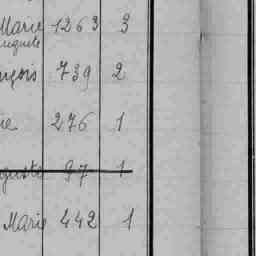 Marie 1263 3
Auguste
nçois 739 2
ie 276 1
guste 97 1
Marie 442 1